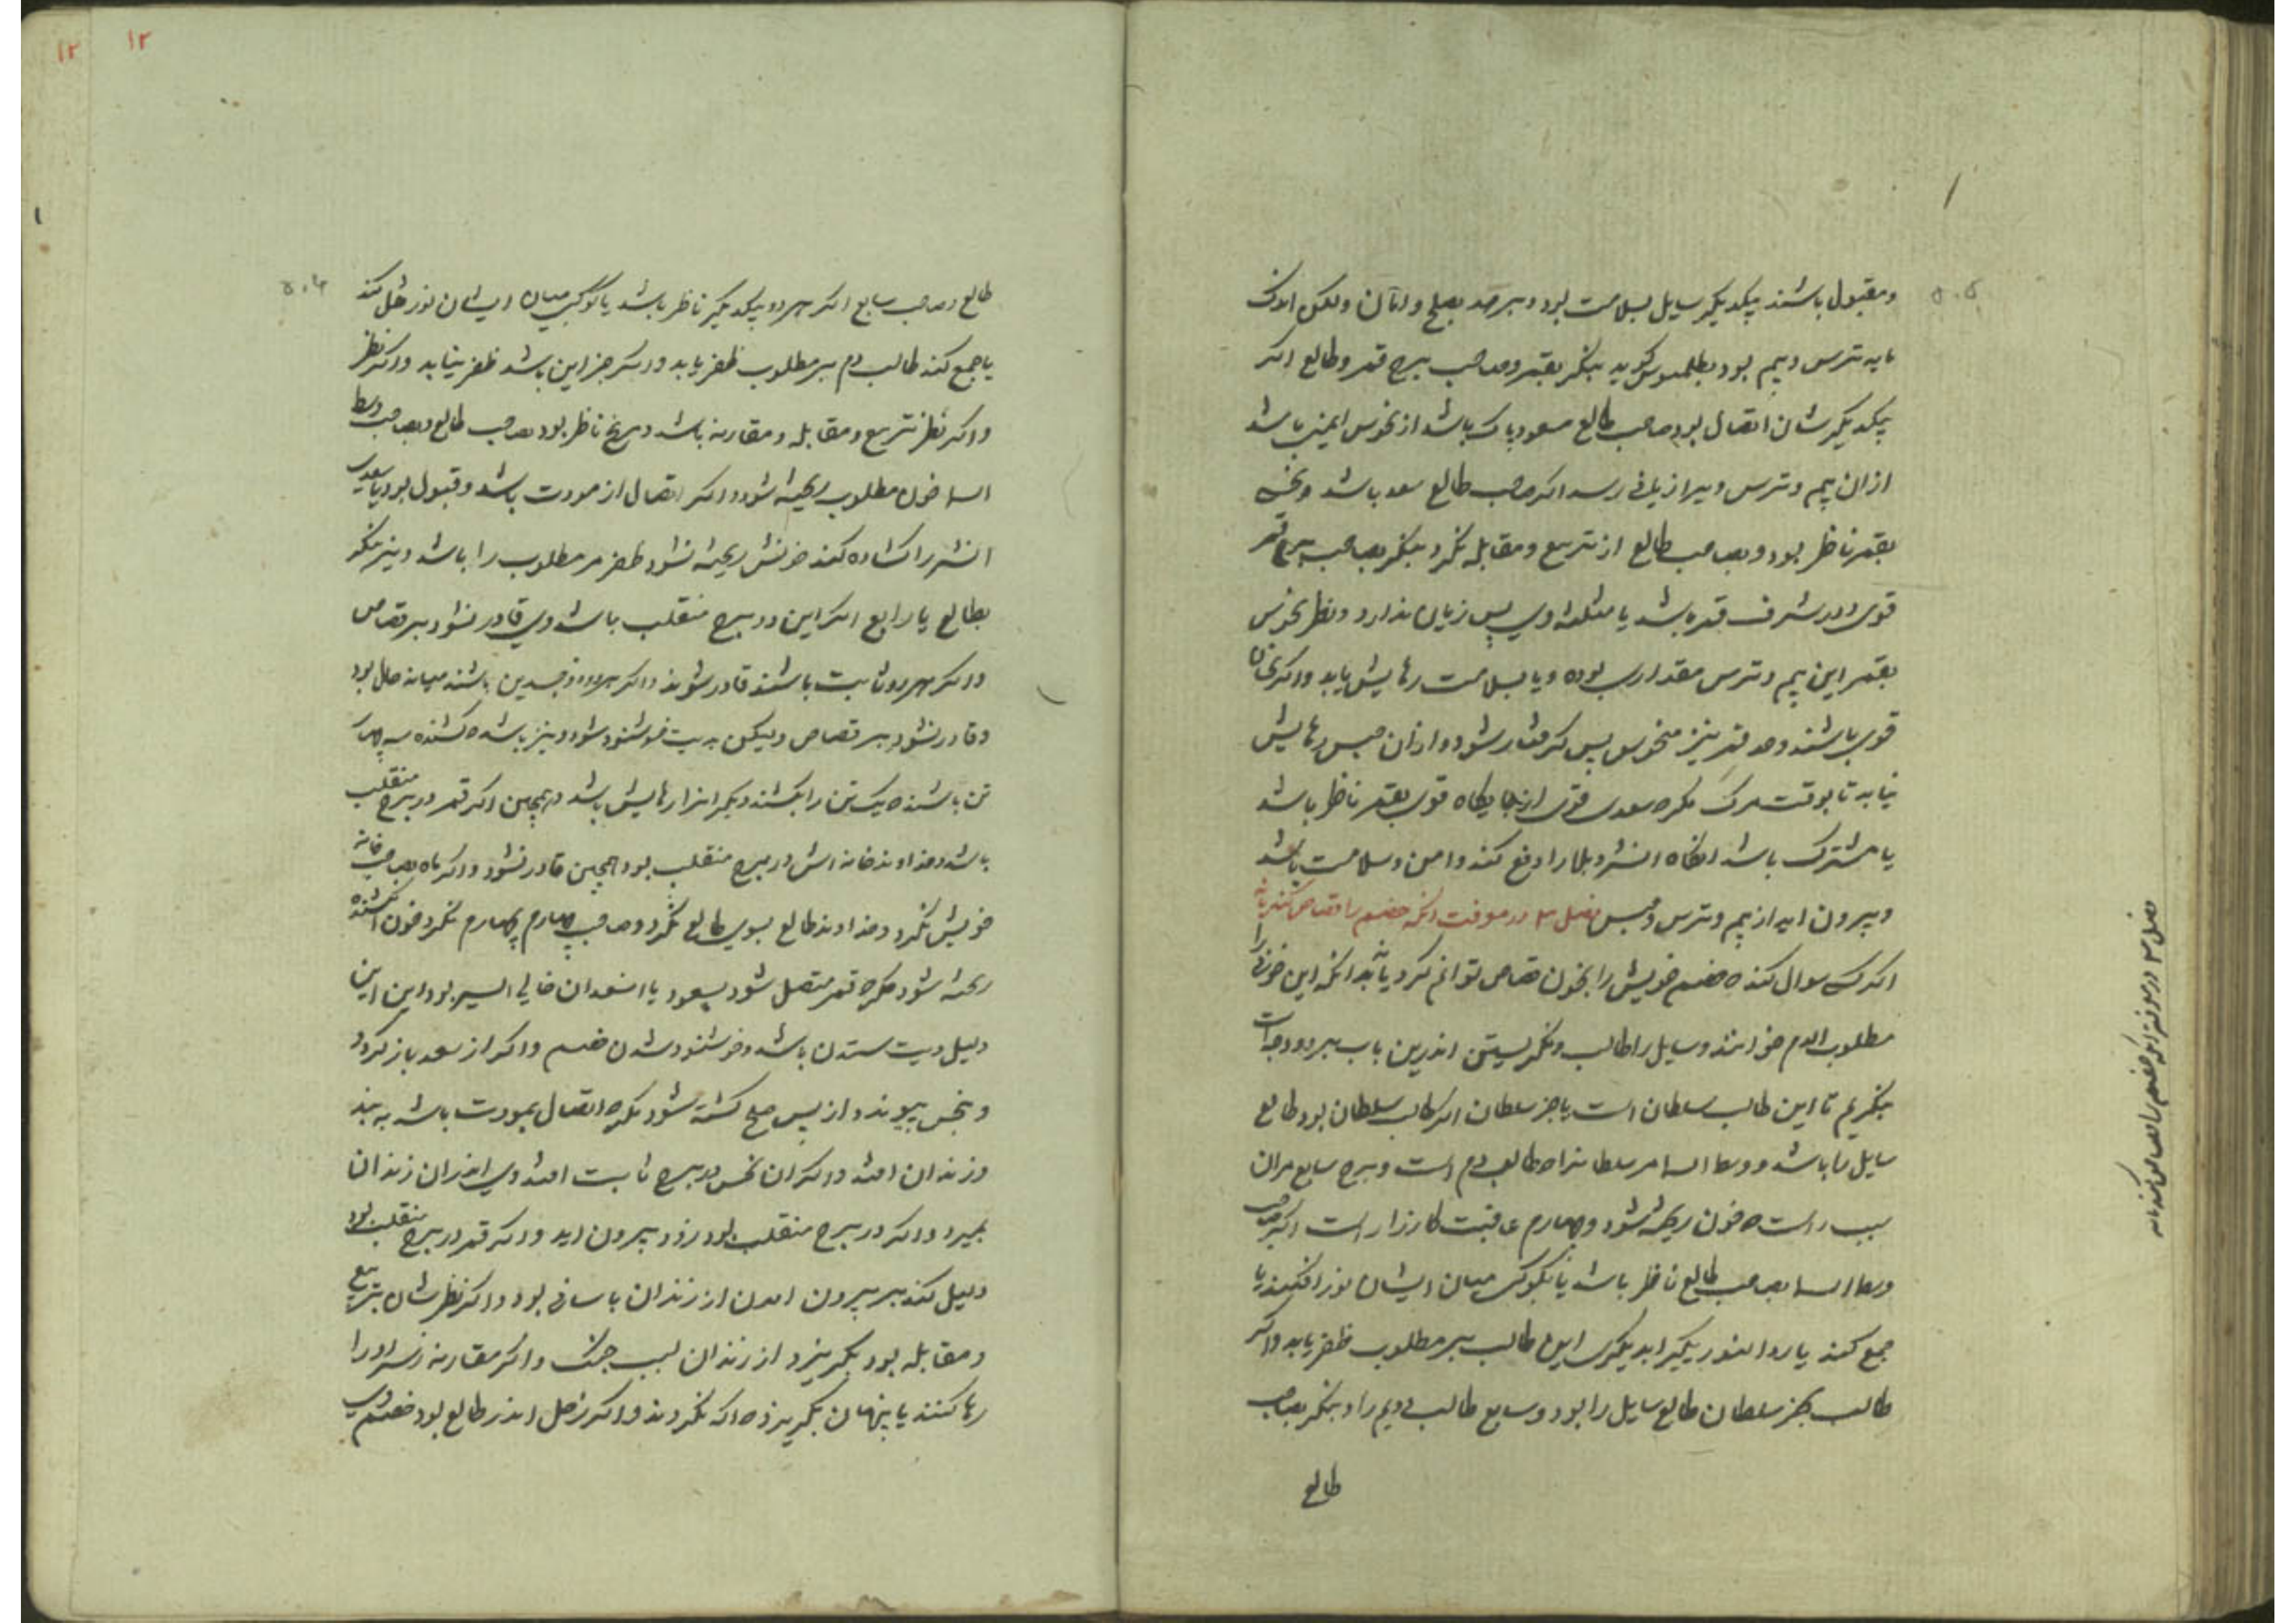 و مقبول باشند بیکدیکر سایل بسلامت بود و بر صد بصلح و ولکن اندک
مایه ترس و بیم بود بطلمیوس کوید بنکر بقمر و صاحب برج قمر و طالع اکر
بیکدیکرشان اتصال بود و صاحب طالع مسعود پاک باشد از نحوس ایمن باشد
ازان بیم و ترس و رسد اکر صاحب طالع سعد باشد و نحسی
بقمر ناظر بود و بصاحب طالع از تربیع و مقابله نکرد بنکر بصاحب برج قمر
قوی و در شرف قمر باشد یا مثلثه وی پس زیان ندارد و نظر نحوس
بقمر این بیم و ترس مقداری بوده و یا بسلامت رهایش یابد و اکر نحسان
قوی باشند و قمر نیز منحوس پس کرفتار شود و ازان حبس رهایش
نیابد تا بوقت مرک مکر که سعدی قوی از جایکاه قوی بقمر ناظر باشد
یا مشترک باشد انکاه ان شر و بلا را دفع کند و امن و سلامت باشد
و بیرون اید از بیم و ترس و حبس فصل ۳ در معرفت انکه خصم را قصاص کند یا نه
اکر کسی سوال کند که خصم خویش را بخون قصاص توانم کرد یا نه بدانکه این خونی را
مطلوب الدم خوانند و سایل را طالب و نکریستن اندرین باب بر دو وجه است
بنکریم تا این طالب سلطان است یا جز سلطان اکر طالب سلطان بود طالع
سایل را باشد و وسط السما مر سلطانرا که طالب دم است و برج سابع مران
سبب راست که خون ریخته شود و چهارم عاقبت کارزار است اکر صاحب
وسط السما بصاحب طالع ناظر باشد یا کوکبی میان ایشان نور افکند یا
جمع کند یا رد النور این طالب بر مطلوب ظفر یابد و اکر
طالب بجز سلطان طالع سایل را بود و سابع طالب دم را و بنکر بصاحب
طالع
فصل ۳ در معرفت انکه خصم را قصاص کند یا نه
۱۲ ۱۲
طالع و صاحب سابع اکر هر دو بیکدیکر ناظر باشد یا کوکبی میان ایشان نور نقل کند
یا جمع کند طالب دم بر مطلوب ظفر یابد و اکر جز این باشد ظفر نیابد و اکر نظر
و اکر نظر تربیع و مقابله و مقارنه باشد و مریخ ناظر بود بصاحب طالع و بصاحب وسط
السما خون مطلوب ریخته شود و اکر اتصال از مودت باشد و قبول بود یا سعدی
ان شر را کشاده کند خونش ریخته نشود ظفر مر مطلوب را باشد و نیز بنکر
بطالع یا رابع اکر این دو برج منقلب باشد وی قادر نشود بر قصاص
و اکر هر دو ثابت باشند قادر شوند و اکر هر دو ذو جسدین باشند میانه حال بود
و قادر نشود بر قصاص ولیکن بدیت خوشنود شود و نیز باشد که کشنده سه چهار
تن باشند که یک تن را بکشند دیکرانرا رهایش باشد و همچنین اکر قمر در برج منقلب
باشد و خداوند خانه اش در برج منقلب بود همچنین قادر نشود و اکر ماه بصاحب خانه
خویش نکرد و خداوند طالع بسوی طالع نکرد و صاحب چهارم بچهارم نکرد خون کشنده
ریخته شود مکر که قمر متصل شود بسعود یا خالی السیر بود این
دلیل دیت ستدن باشد و خوشنود شدن خصم و اکر از سعد باز کردد
و بنحس پیوندد از پس صلح کشته شود مکر که اتصال بمودت باشد به بند
و زندان افتد و اکر ان نحس در برج ثابت افتد وی اندران زندان
بمیرد و اکر در برج منقلب بود زود بیرون اید و اکر قمر در برج منقلب بود
دلیل کند بر بیرون امدن از زندان باسانی بود و اکر نظرشان بتربیع
و مقابله بود بکریزد از زندان بسبب جنک و اکر مقارنه او را
رها کنند یا پنهان بکریزد و اکر زحل اندر طالع بود خصم وی